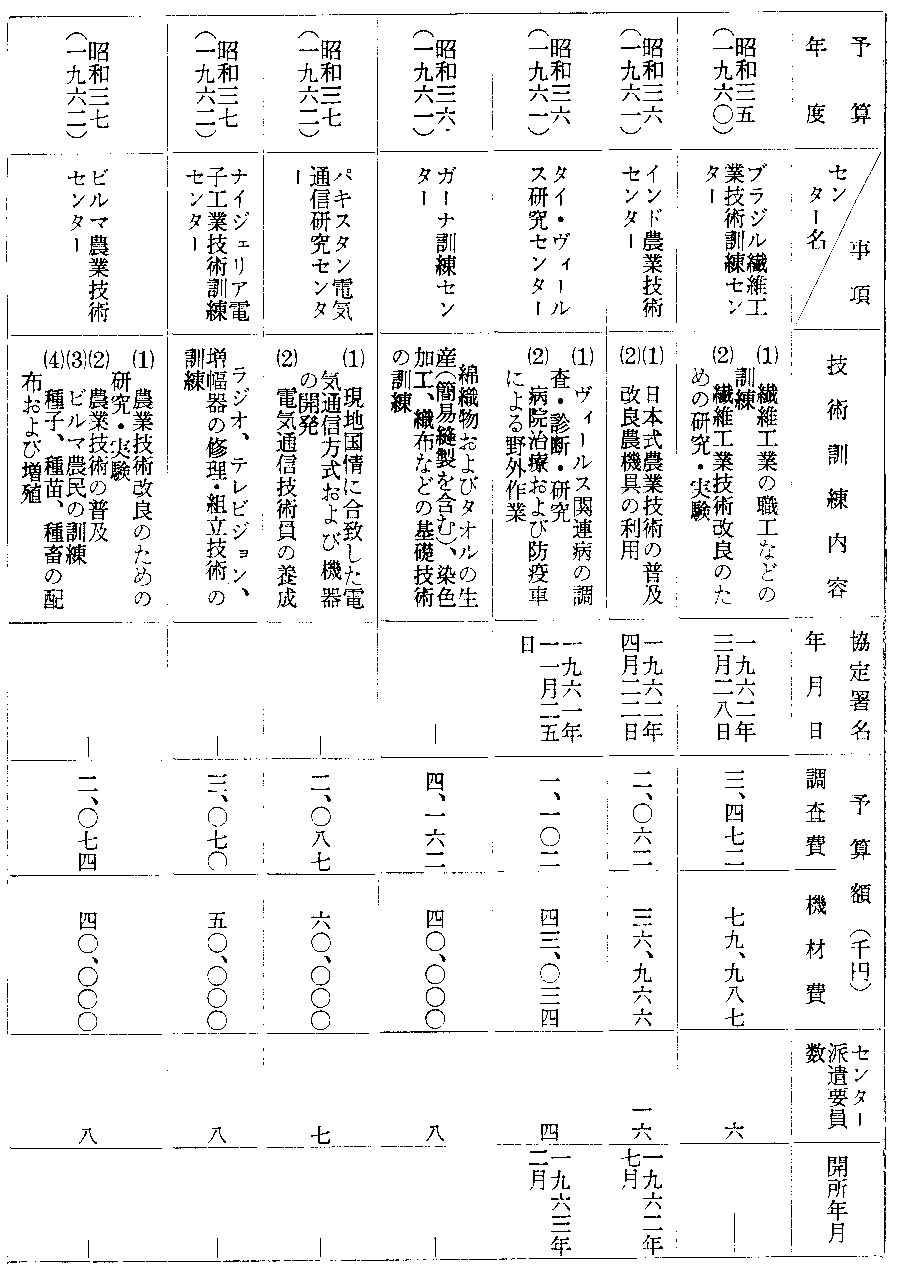 予算
年度
事項
センター名
技術訓練内容
協定署名
年月日
予算額(千円)
調査費
機材費
センター
派遣要員
数
開所年月
昭和三五
(一九六〇)
ブラジル繊維工
業技術訓練セン
ター
(1) 繊維工業の職工などの
訓練
(2) 繊維工業技術改良のた
めの研究・実験
一九六二年
三月二八日
三、四七二
七九、九八七
六
―
昭和三六
(一九六一)
インド農業技術
センター
(1) 日本式農業技術の普及
(2) 改良農機具の利用
一九六二年
四月二二日
二、〇六二
三六、九六六
一六
一九六二年
七月
昭和三六
(一九六一)
タイ・ヴィール
ス研究センター
(1) ヴィールス関連病の調
査・診断・研究
(2) 病院治療および防疫車
による野外作業
一九六一年
一一月二五
日
一、一〇二
四三、〇三四
四
一九六三年
二月
昭和三六
(一九六一)
ガーナ訓練セン
ター
綿織物およびタオルの生
産(簡易縫製を含む)、染色
加工、織布などの基礎技術
の訓練
―
四、一六二
四〇、〇〇〇
八
―
昭和三七
(一九六二)
パキスタン電気
通信研究センタ
ー
(1) 現地国情に合致した電
気通信方式および機器
の開発
(2) 電気通信技術員の養成
―
二、〇八七
六〇、〇〇〇
七
―
昭和三七
(一九六二)
ナイジェリア電
子工業技術訓練
センター
ラジオ、テレビジョン、
増幅器の修理・組立技術の
訓練
―
三、〇七〇
五〇、〇〇〇
八
―
昭和三七
(一九六二)
ビルマ農業技術
センター
(1) 農業技術改良のための
研究・実験
(2) 農業技術の普及
(3) ビルマ農民の訓練
(4) 種子、種苗、種畜の配
布および増殖
―
二、〇七四
四〇、〇〇〇
八
―